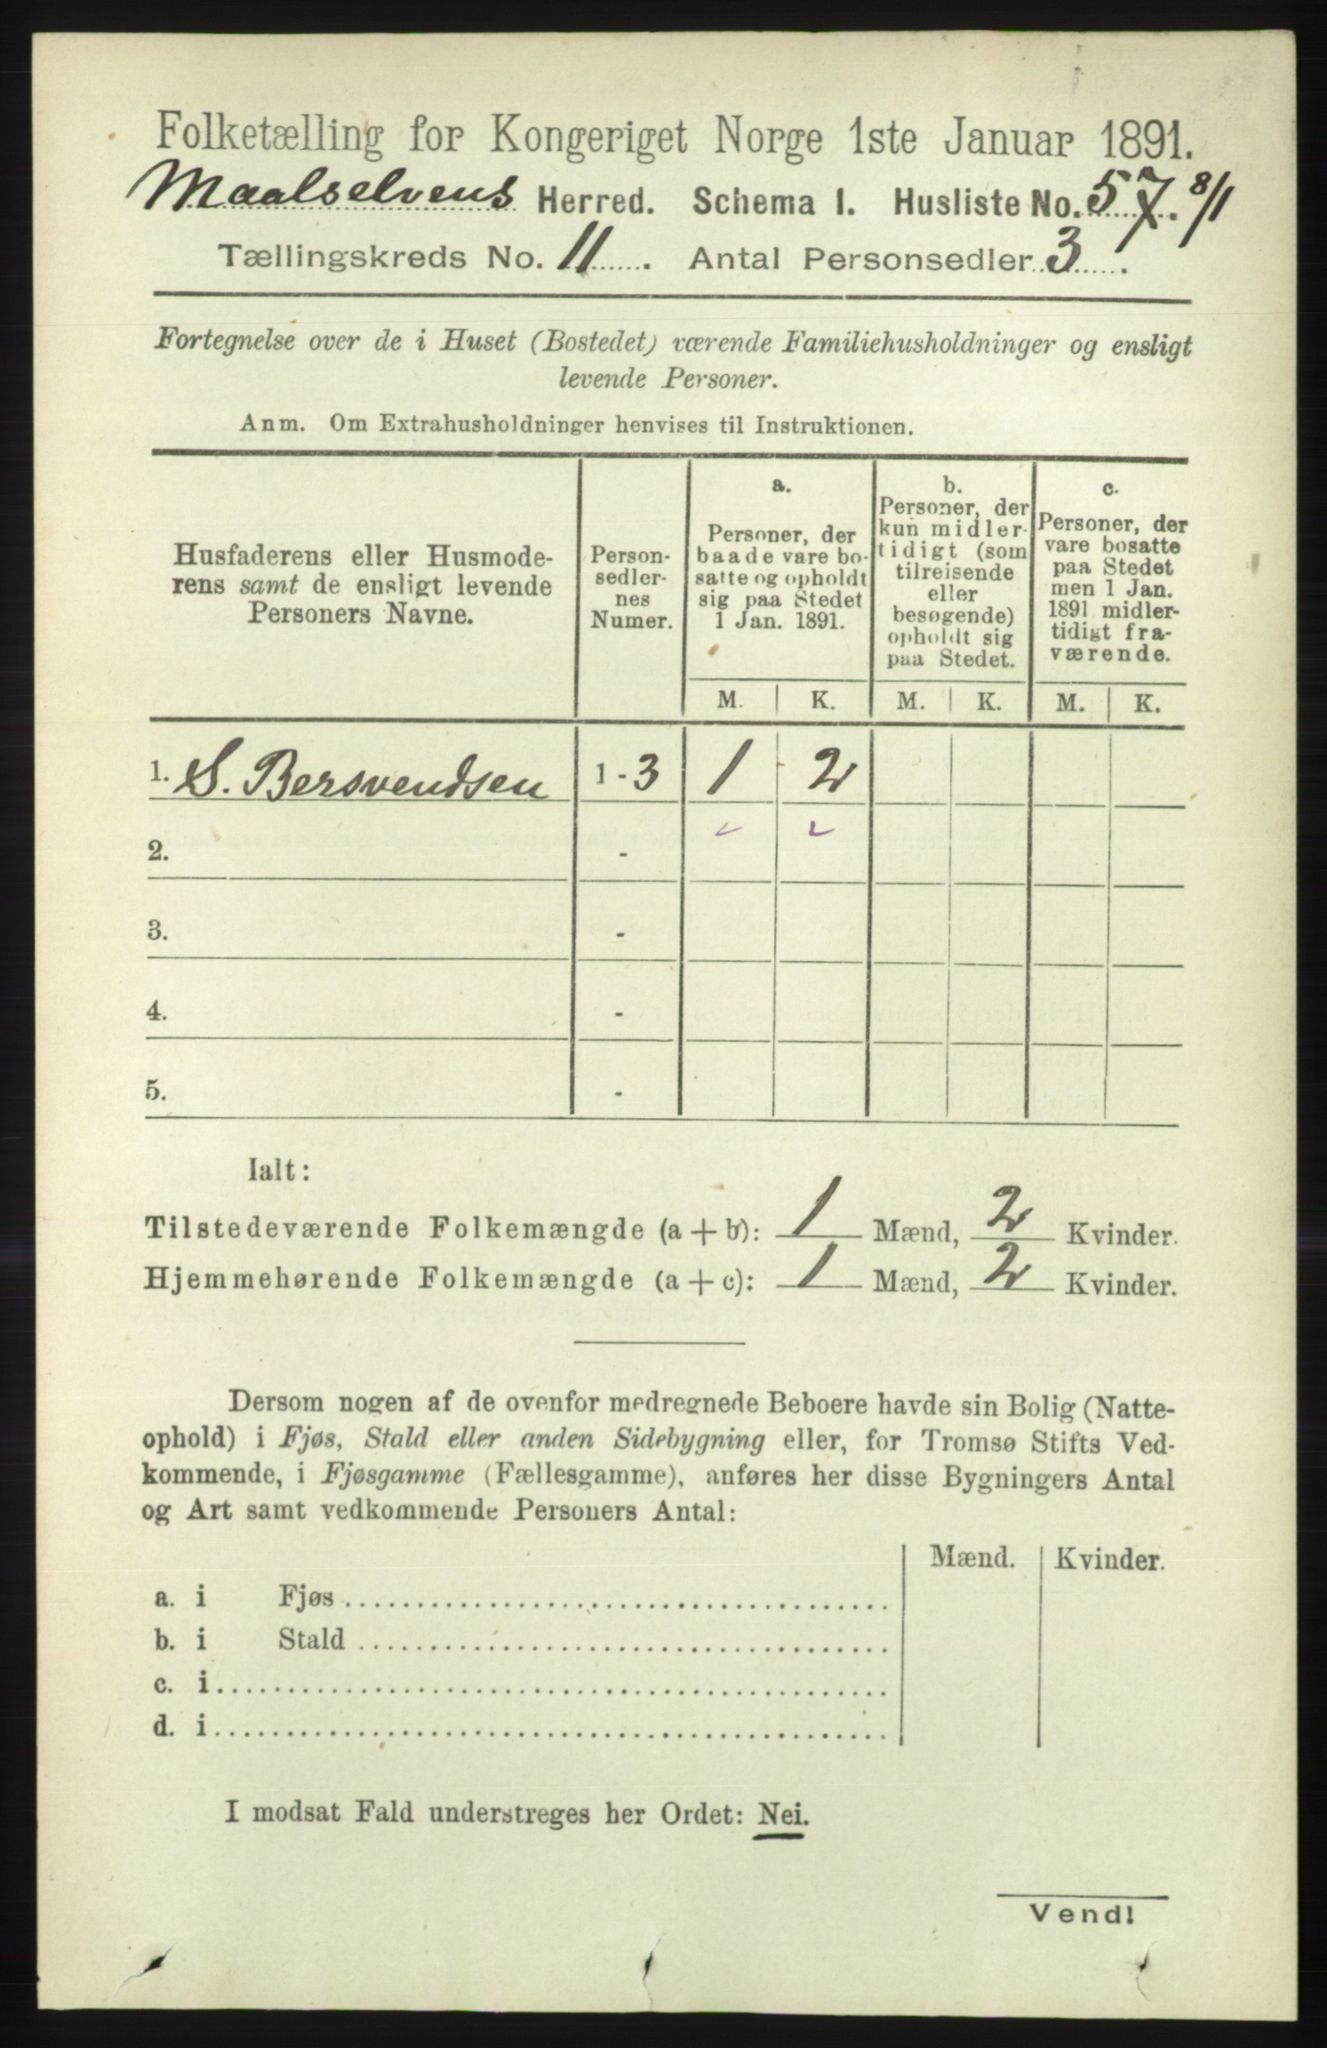 Folketælling for Kongeriget Norge 1ste Januar 1891.
Maalselvens Herred. Schema I. Husliste No. 57. 8/1
Tællingskreds No. 11 . Antal Personsedler 3 .
Fortegnelse over de i Huset (Bostedet) værende Familiehusholdninger og ensligt
levende Personer.
Anm. Om Extrahusholdninger henvises til Instruktionen.
Husfaderens eller Husmode-
rens samt de ensligt levende
Personers Navne.
Person-
sedler-
nes
Numer.
a.
Personer, der
baade vare bo-
satte og opholdt
sig paa Stedet
1 Jan. 1891.
b.
Personer, der
kun midler-
tidigt (som
tilreisende
eller
besøgende)
opholdt sig
paa Stedet.
c.
Personer, der
vare bosatte
paa Stedet
men 1 Jan.
1891 midler-
tidigt fra-
værende.
M. K. M. K. M. K.
1. S. Bersvendsen 1 - 3 1 2
2. -
3. -
4. -
5. -
Ialt:
Tilstedeværende Folkemængde (a + b): 1 Mænd, 2 Kvinder.
Hjemmehørende Folkemængde (a + c): 1 Mænd, 2 Kvinder.
Dersom nogen af de ovenfor medregnede Beboere havde sin Bolig (Natte-
ophold) i Fjøs, Stald eller anden Sidebygning eller, for Tromsø Stifts Ved-
kommende, i Fjøsgamme (Fællesgamme), anføres her disse Bygningers Antal
og Art samt vedkommende Personers Antal:
Mænd. Kvinder.
a. i Fjøs
b. i Stald
c. i
d. i
I modsat Fald understreges her Ordet: Nei.
Vend!